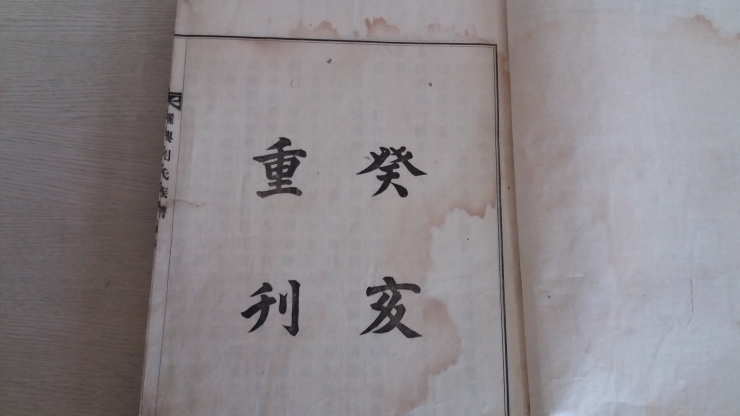 癸亥
重刊
氏族譜